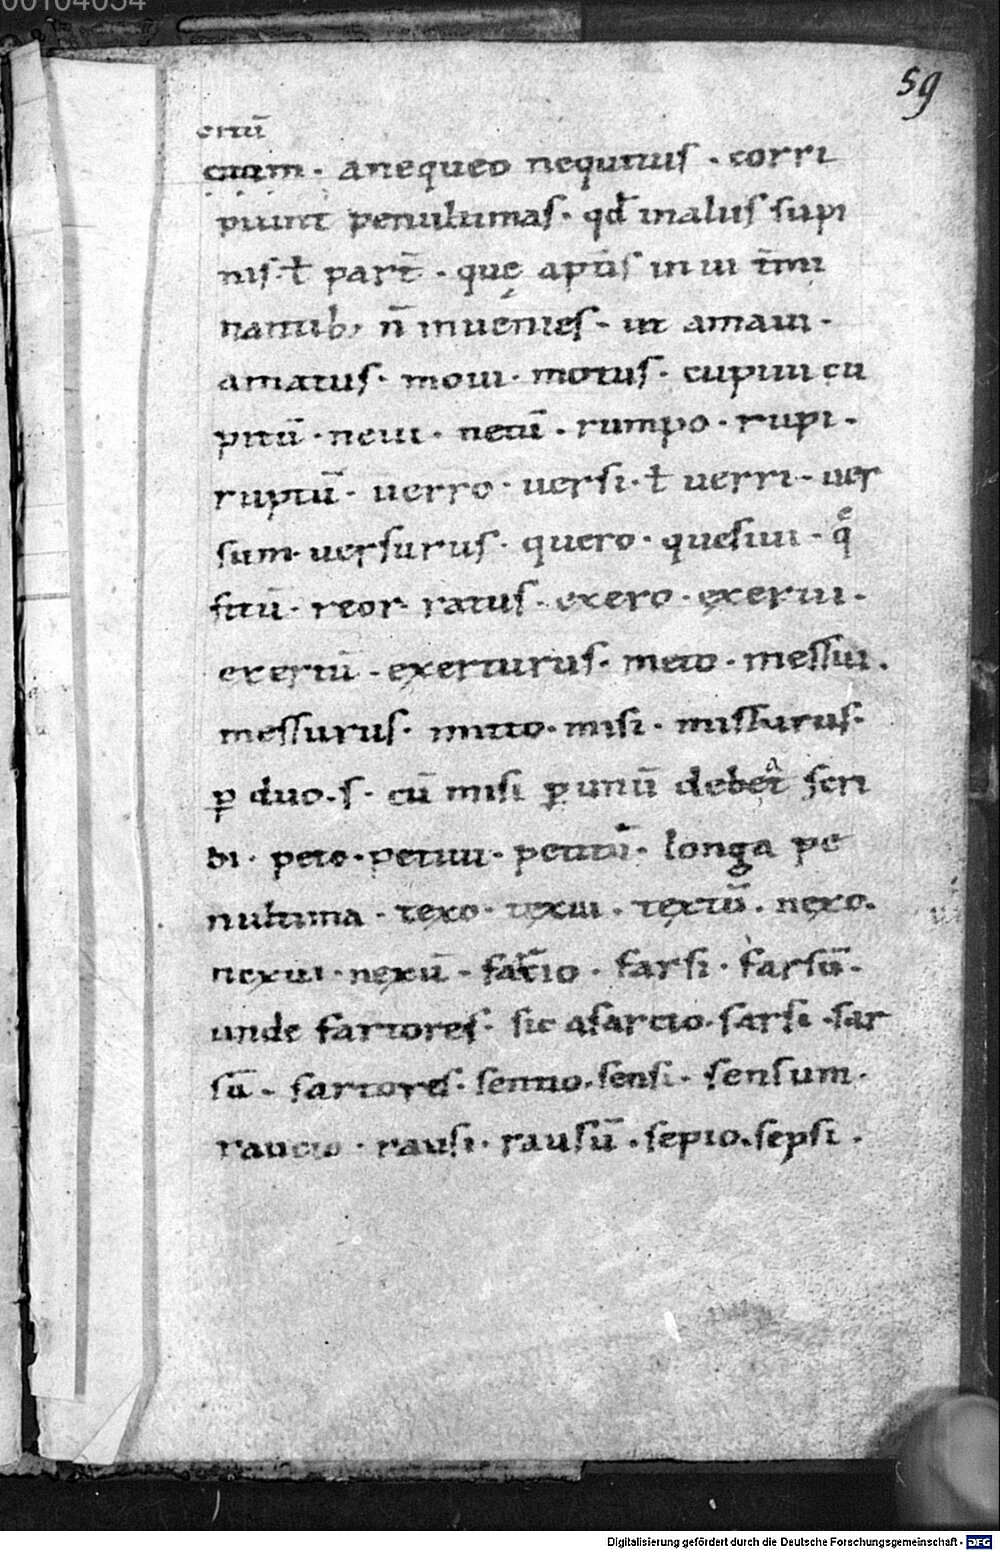 00104054
59
citū
citum · anequeo nequitus · corri
piunt penultimas · qđ in aliis supi
nis · ł part̄ · que aptis in ui t̄mi
nantib; n̄ inuenies · ut amaui ·
amatus · moui · motus · cupiui cu
pitū · neui · netū · rumpo · rupi ·
ruptū · uerro · uersi · ł uerri · uer
sum · uersurus · quero · quesiui · q̄
sitū · reor · ratus · exero · exerui ·
exertū · exerturus · meto · messui ·
messurus · mitto · misi · missurus ·
ꝑ duo · s · cū misi ꝑ unū debet scri
bi · peto · petiui · petitū · longa pe
nultima · texo · texui · textū · nexo ·
nexui · nexū · farcio · farsi · farsū ·
unde fartores · sic & sarcio · sarsi · sar
sū · sartores · sentio · sensi · sensum ·
raucio · rausi · rausū · sepio · sepsi ·
Digitalisierung gefördert durch die Deutsche Forschungsgemeinschaft - DFG